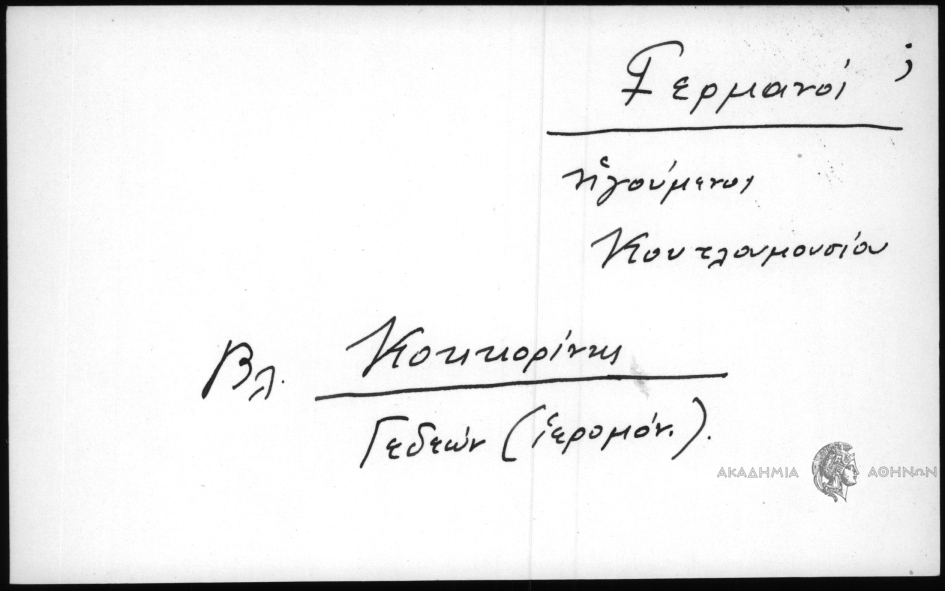 Γερμανοί ;
ἡγούμενοι
Κουτλουμουσίου
Βλ. Κοκκορίνης
Γεδεών (ἱερομόν.).
ΑΚΑΔΗΜΙΑ ΑΘΗΝΩΝ